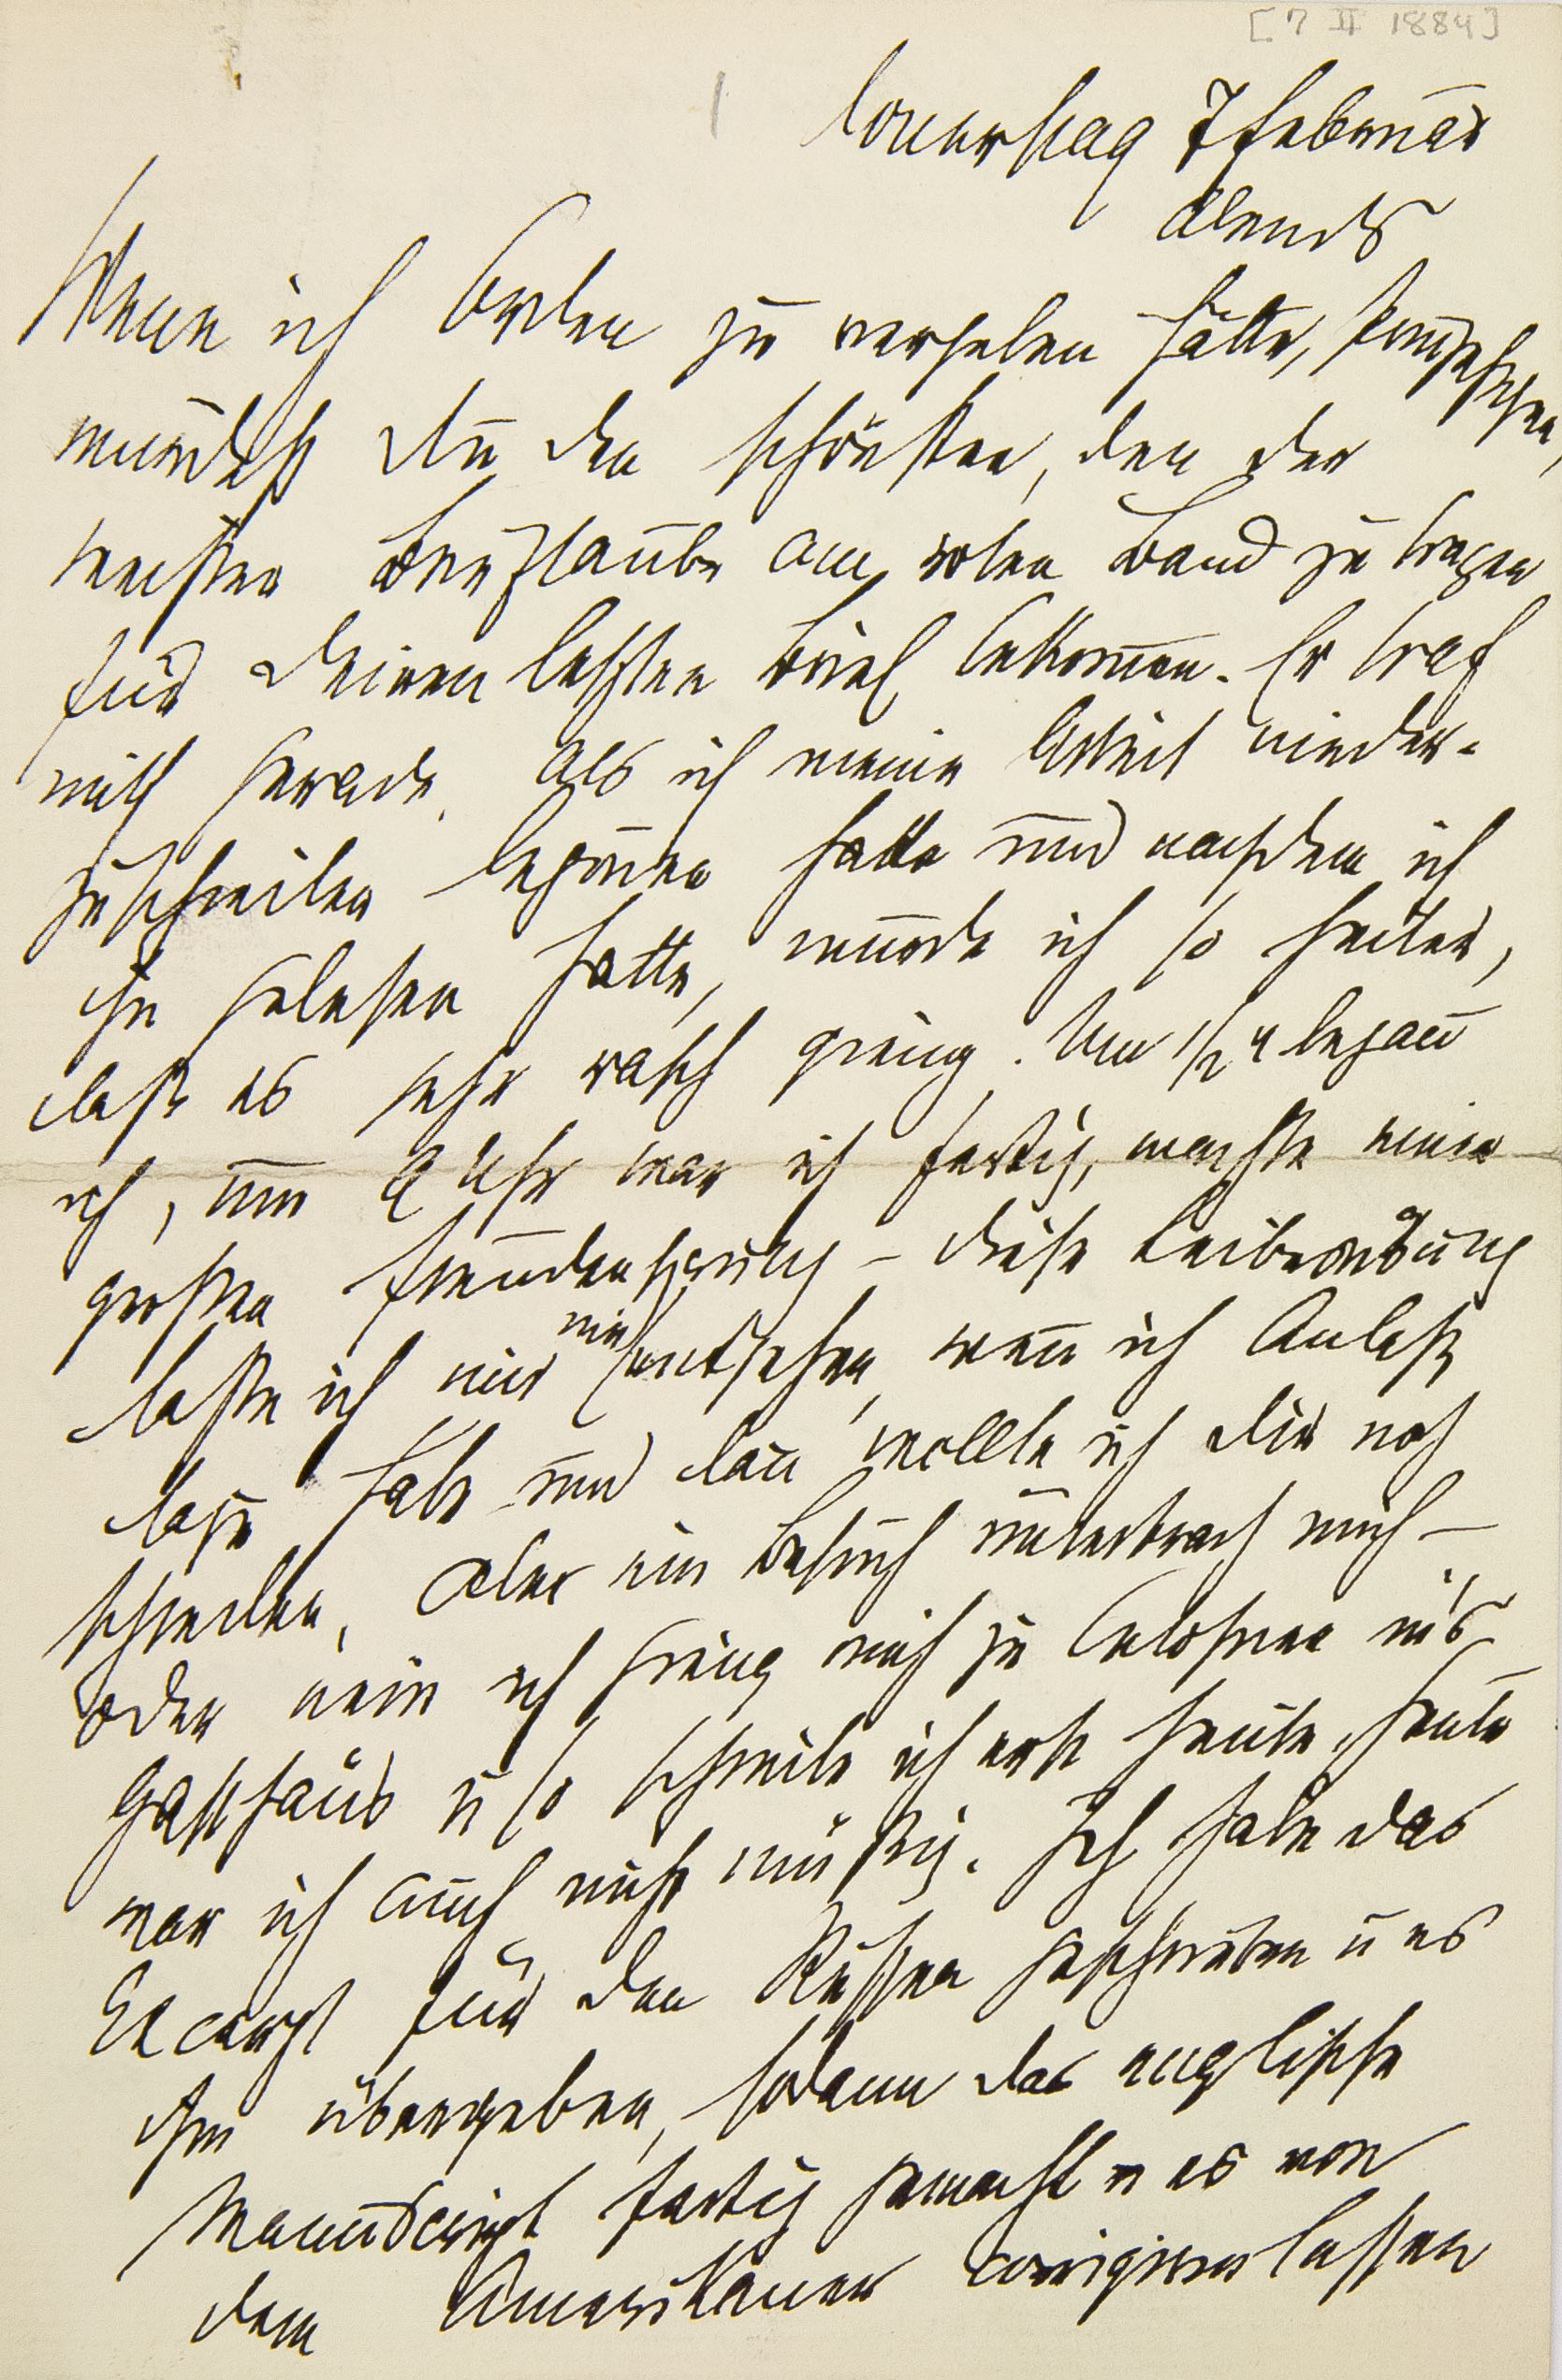 [7 II 1884]
Donnerstag 7 Februar
abends
Wenn ich Orden zu vergeben hätte, Prinzeßchen,
würdest Du den schönsten, den der
treusten am roten Band zu tragen
für Deinen letzten Brief bekommen. Er traf
mich gerade, als ich meine Arbeit nieder-
zuschreiben begonnen hatte und nachdem ich
ihn gelesen hatte, wurde ich so heiter,
daß es sehr rasch gieng. Um 1/2 4 begann
ich, um 9 Uhr war ich fertig, machte einen
großen Freudensprung – diese Leibesübung
lasse ich mir nie entgehen, wenn ich Anlaß
dazu habe und dann wollte ich Dir noch
schreiben, aber ein Besuch unterbrach mich –
oder nein ich gieng mich zu belohnen in's
Gasthaus u so schreib ich erst heute. Heute
war ich auch nicht müßig. Ich habe das
Excerpt für den Russen geschrieben u es
ihm übergeben, sodann das englische
Manuscript fertig gemacht u es von
dem Amerikaner corrigiren lassen